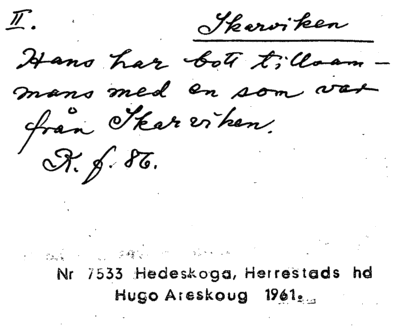 II. Skarviken
Hans har bott tillsam-
mans med en som var
från Skarviken.
K. f. 86.
Nr 7533 Hedeskoga, Herrestads hd
Hugo Areskoug 1961.